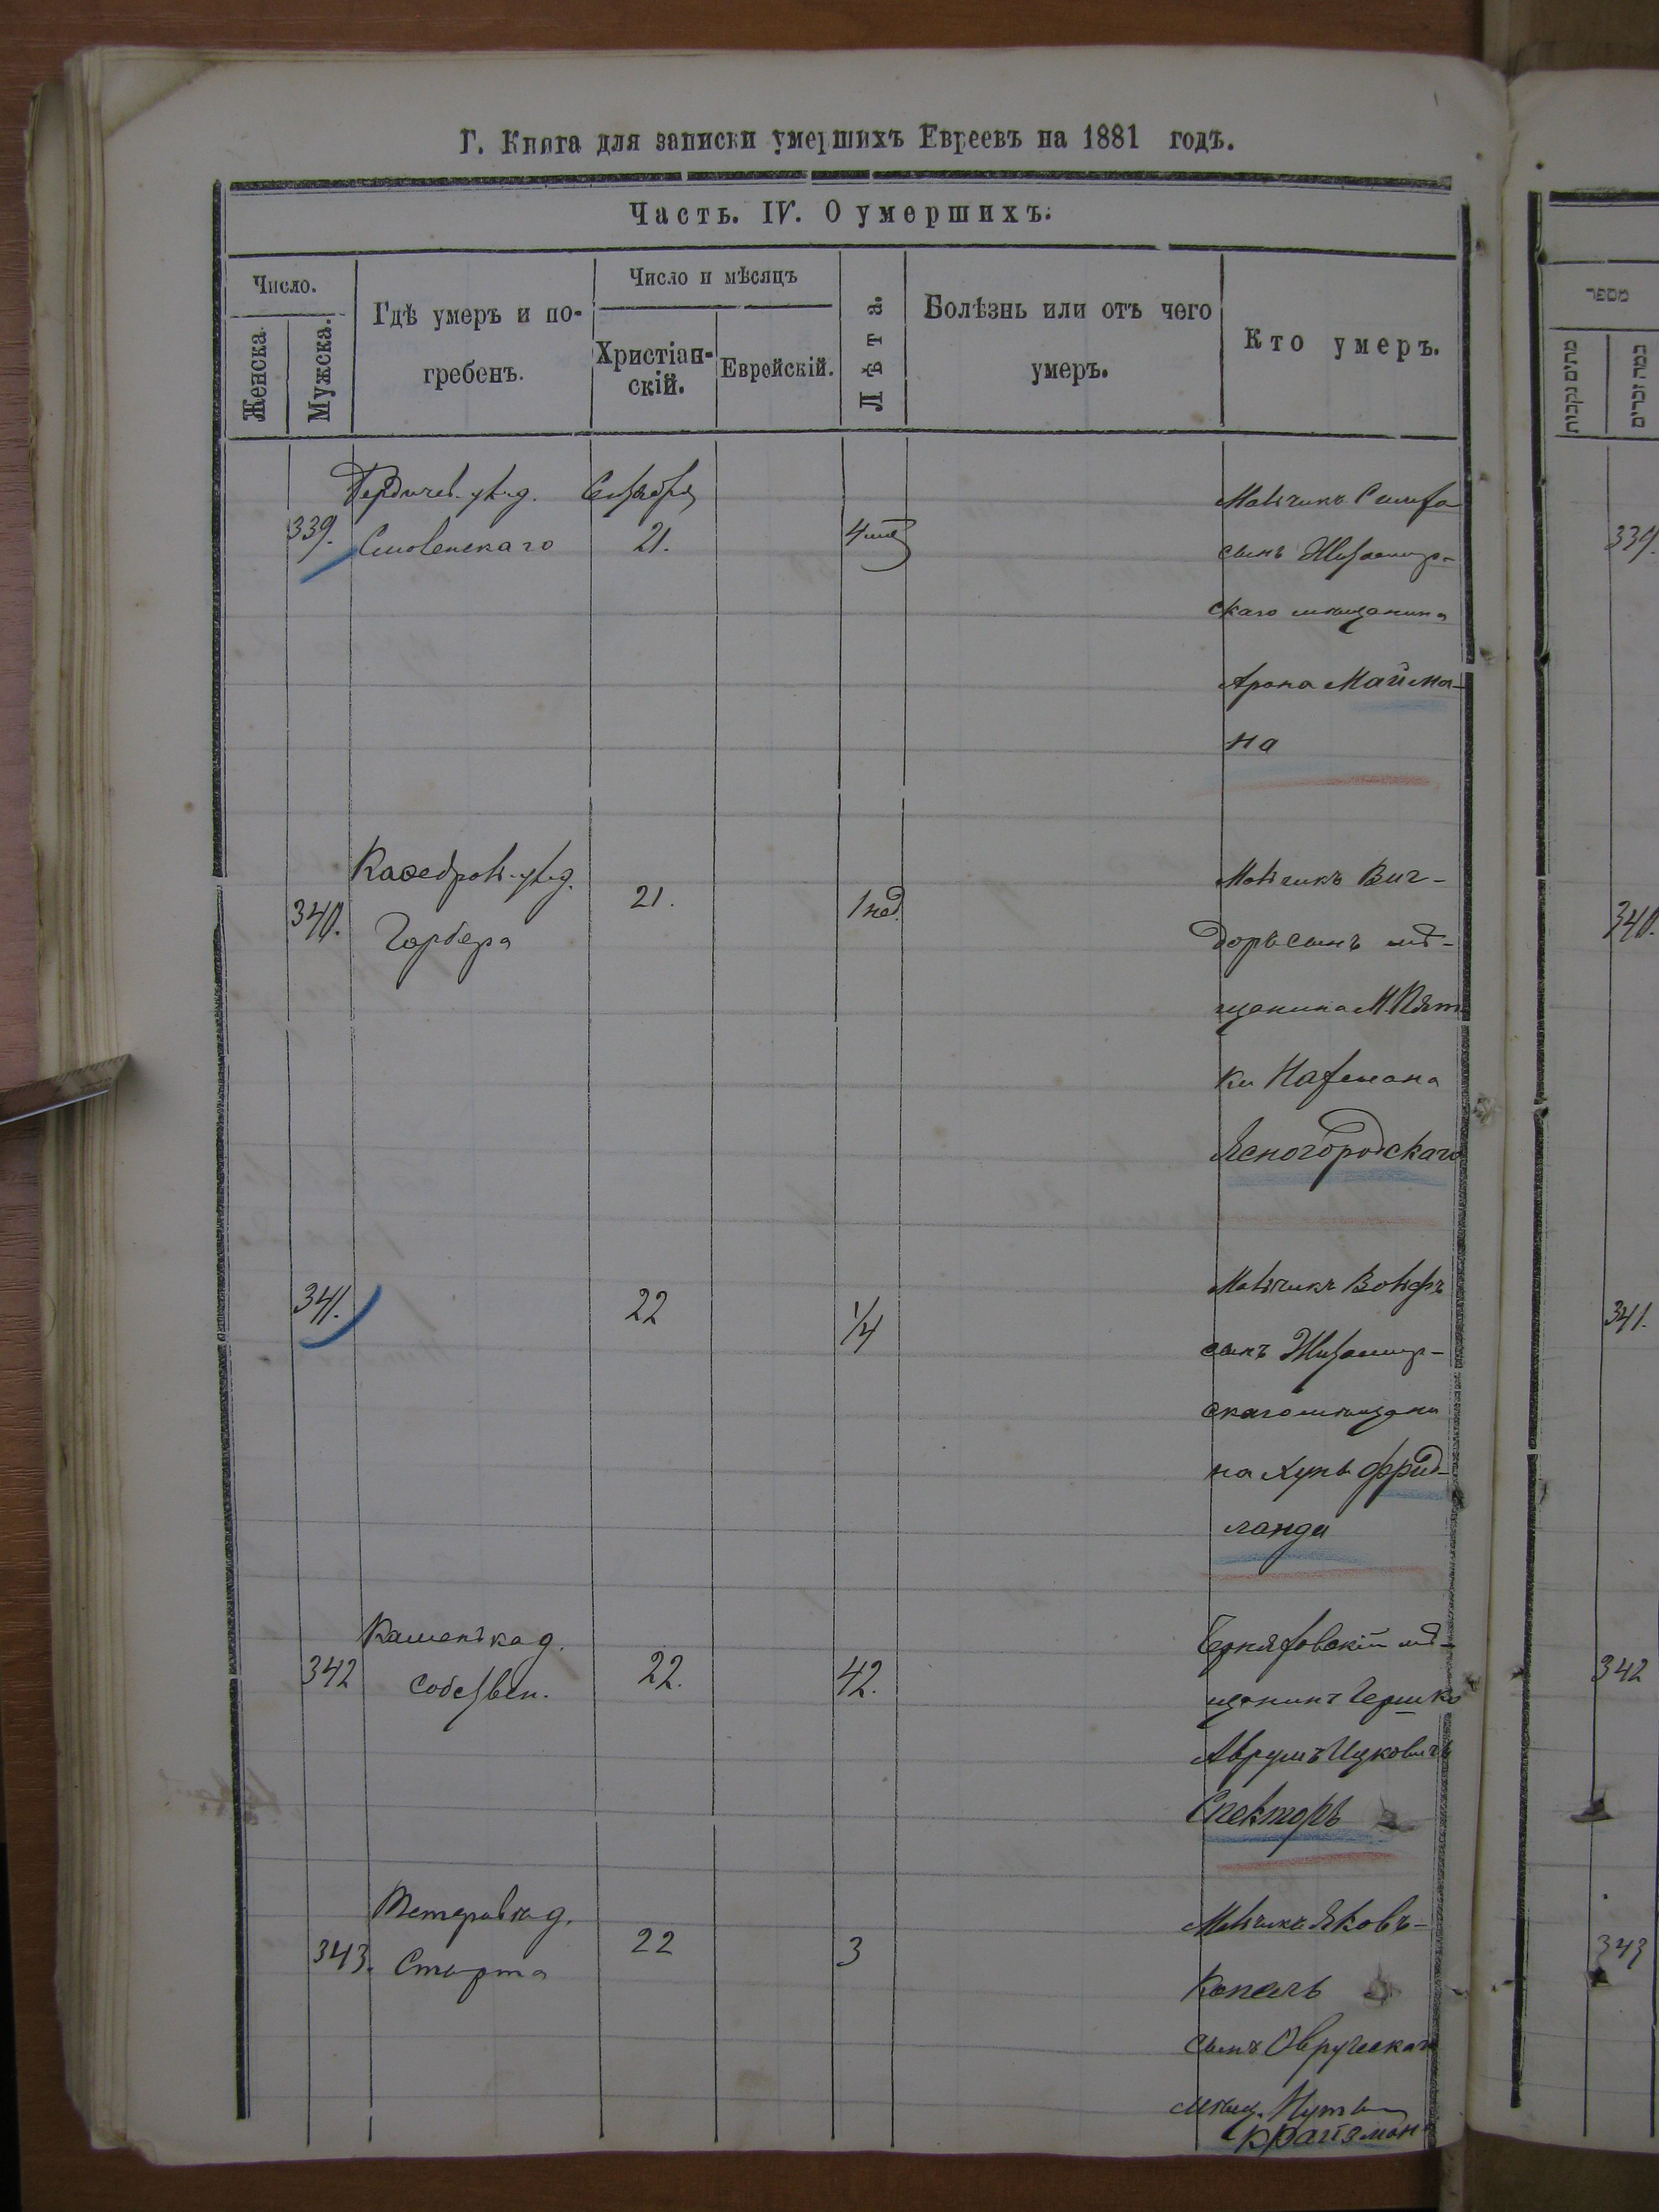 Г. Книга для записки умершихъ Евреевъ на 1881 годъ.
Часть. IV. О умершихъ.
Число.
Женска
Мужска.
Гдѣ умеръ и по-
гребенъ.
Число и мѣсяцъ
Христіан-
скій.
Еврейскій.
Лѣта.
Болѣзнь или отъ чего
умеръ.
Кто умеръ.
339.
Бердичев. ул. д.
Смоленскаго
Сентября
21.
4 мѣс
Мальчикъ
сынъ Житомир-
скаго мѣщанина
Арона Майма-
на
340.
Каѳедральн. ул. д.
Гарбера
21.
1 нед.
Мальчикъ Виг-
доръ сынъ мѣ-
щанина М. Пят-
ки Натмана
Ясногородскаго
341.
22
1/4
Мальчикъ Вольфъ
сынъ Житомир-
скаго мѣщани
на Фрид-
ланда
342
Каменька д.
собствен.
22.
42.
Черняховскій мѣ-
щанинъ Гершко
Аврумъ Ицковичъ
Спекторъ
343.
Тетеревка д.
22
3
Мальчикъ Яковъ-
Копель
сынъ Овручскаго
мѣщ.
Крайзман
מספר
מתים נקבות
כמה זכרים
339.
340.
341.
342
343